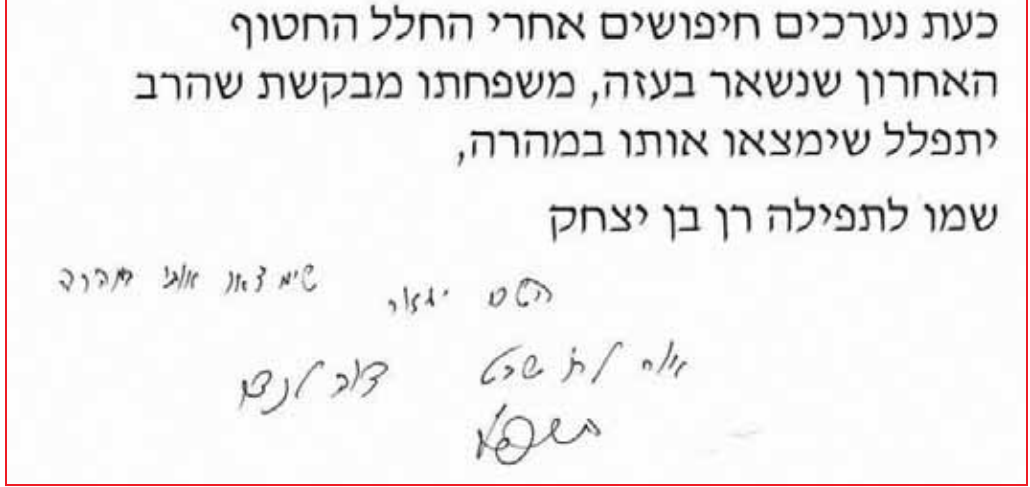 כעת נערכים חיפושים אחרי החלל החטוף
האחרון שנשאר בעזה, משפחתו מבקשת שהרב
יתפלל שימצאו אותו במהרה,
שמו לתפילה רן בן יצחק
השם יעזור שימצאו אותו מהרה
אור לח' שבט דוב לנדו